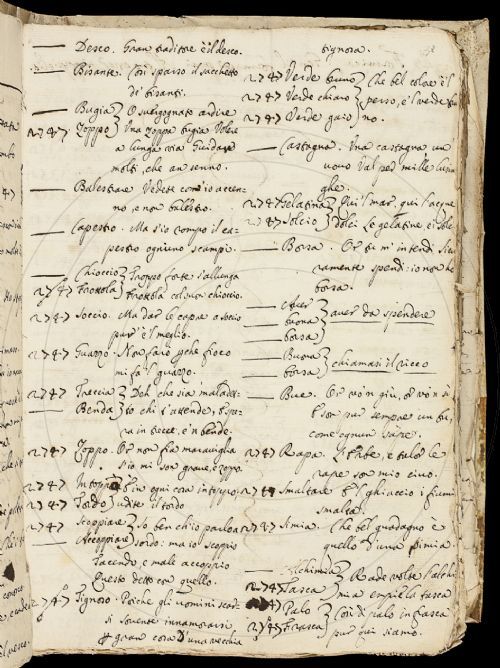 — Desco. Gran traditore è il desco.
— Bisante. Così sparso il sacchetto
di bisanti.
— Bugia
2747 Zoppo. Una zoppa bugia
a lunga via
molti, che an senno.
— Balestrare Vedete com'io accen-
no, e non balestro.
— Capestro. Ma s'io rompo il ca-
pestro ogniuno scampi.
— Chioccio Troppo forte s'allunga
2747 Frottola Frottola col suon chioccio.
— Soccio. Ma dar le capre a soccio
pur è il meglio.
2747 Guazzo. Non farò che fioco
mi fa'l guazzo.
2747 Treccia Deh che sia maladet-
— Benda to chi s'attende, o spe-
ra in trecce, e'n bende.
2747 Zoppo. Or non fia maraviglia
s'io mi son grave, e zoppo.
2747 Intoppo E in ogni cosa intoppo,
2747 Tordo udite il tordo
2747 Scoppiare So ben ch'io parlo a
— Accoppiare sordo: ma io scoppio
tacendo, e male accoppio
questo detto con quello.
2747 Signoro. Poiche gli uomini
si sovente innamorarsi
gran cosa d'una vecchia
signora.
2747 Verde bruno Che bel colore è'l
2747 Verde chiaro perso, e'l verde bru
2747 Verde gaio no.
— Castagna. Una castagna un
uomo Val per mille
ghe.
2747 Gelatina Qui'l mar, qui l'acque
2747 Solcio dolci Le gelatine, e'l
— Borra. Or tu m'intendi
ramente spendi: io non ho
borra.
— aver
— buona aver da spendere
— borsa
— Buona
— borsa chiamasi il ricco
— Bue. Or vo'n giù, or vo'n su
E son pur sempre un bu,
come ognun sape.
2747 Rapa. rape, e tutto le
rape son mio civo.
2747 Smaltare. E'l ghiaccio i fiumi
smalta.
2747 Simia. Che bel guadagno e
quello d'una simia
— Alchimia Rade volte l'alchi
2747 Tasca mia empiè la tasca
2747 Palo Così di palo in frasca
2747 Frasca pur qui siamo.